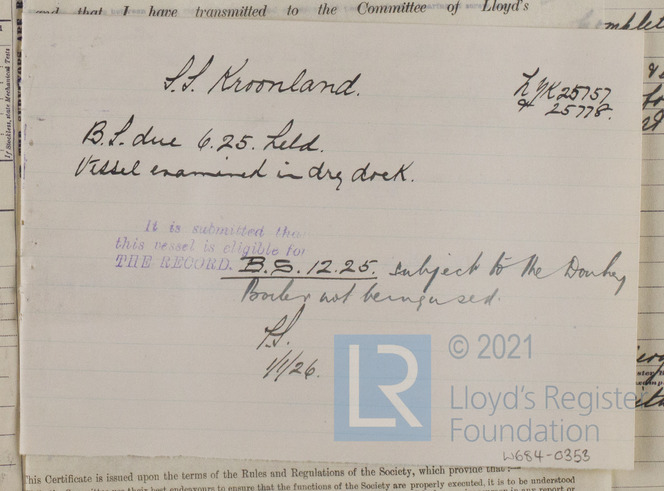 and that I have transmitted to the Committee of Lloyd's
S.S. Kroonland.
N.YK 25757
& 25778.
B.S. due 6.25. held.
Vessel examined in dry dock.
It is submitted that
this vessel is eligible for
THE RECORD. B.S. 12.25. subject to the Donkey
Boiler not being used.
1/1/26.
LR
© 2021
Lloyd's Register
Foundation
W684-0353
This Certificate is issued upon the terms of the Rules and Regulations of the Society, which provide that:—
to ensure that the functions of the Society are properly executed, it is to be understood
If Stockless, state Mechanical Tests